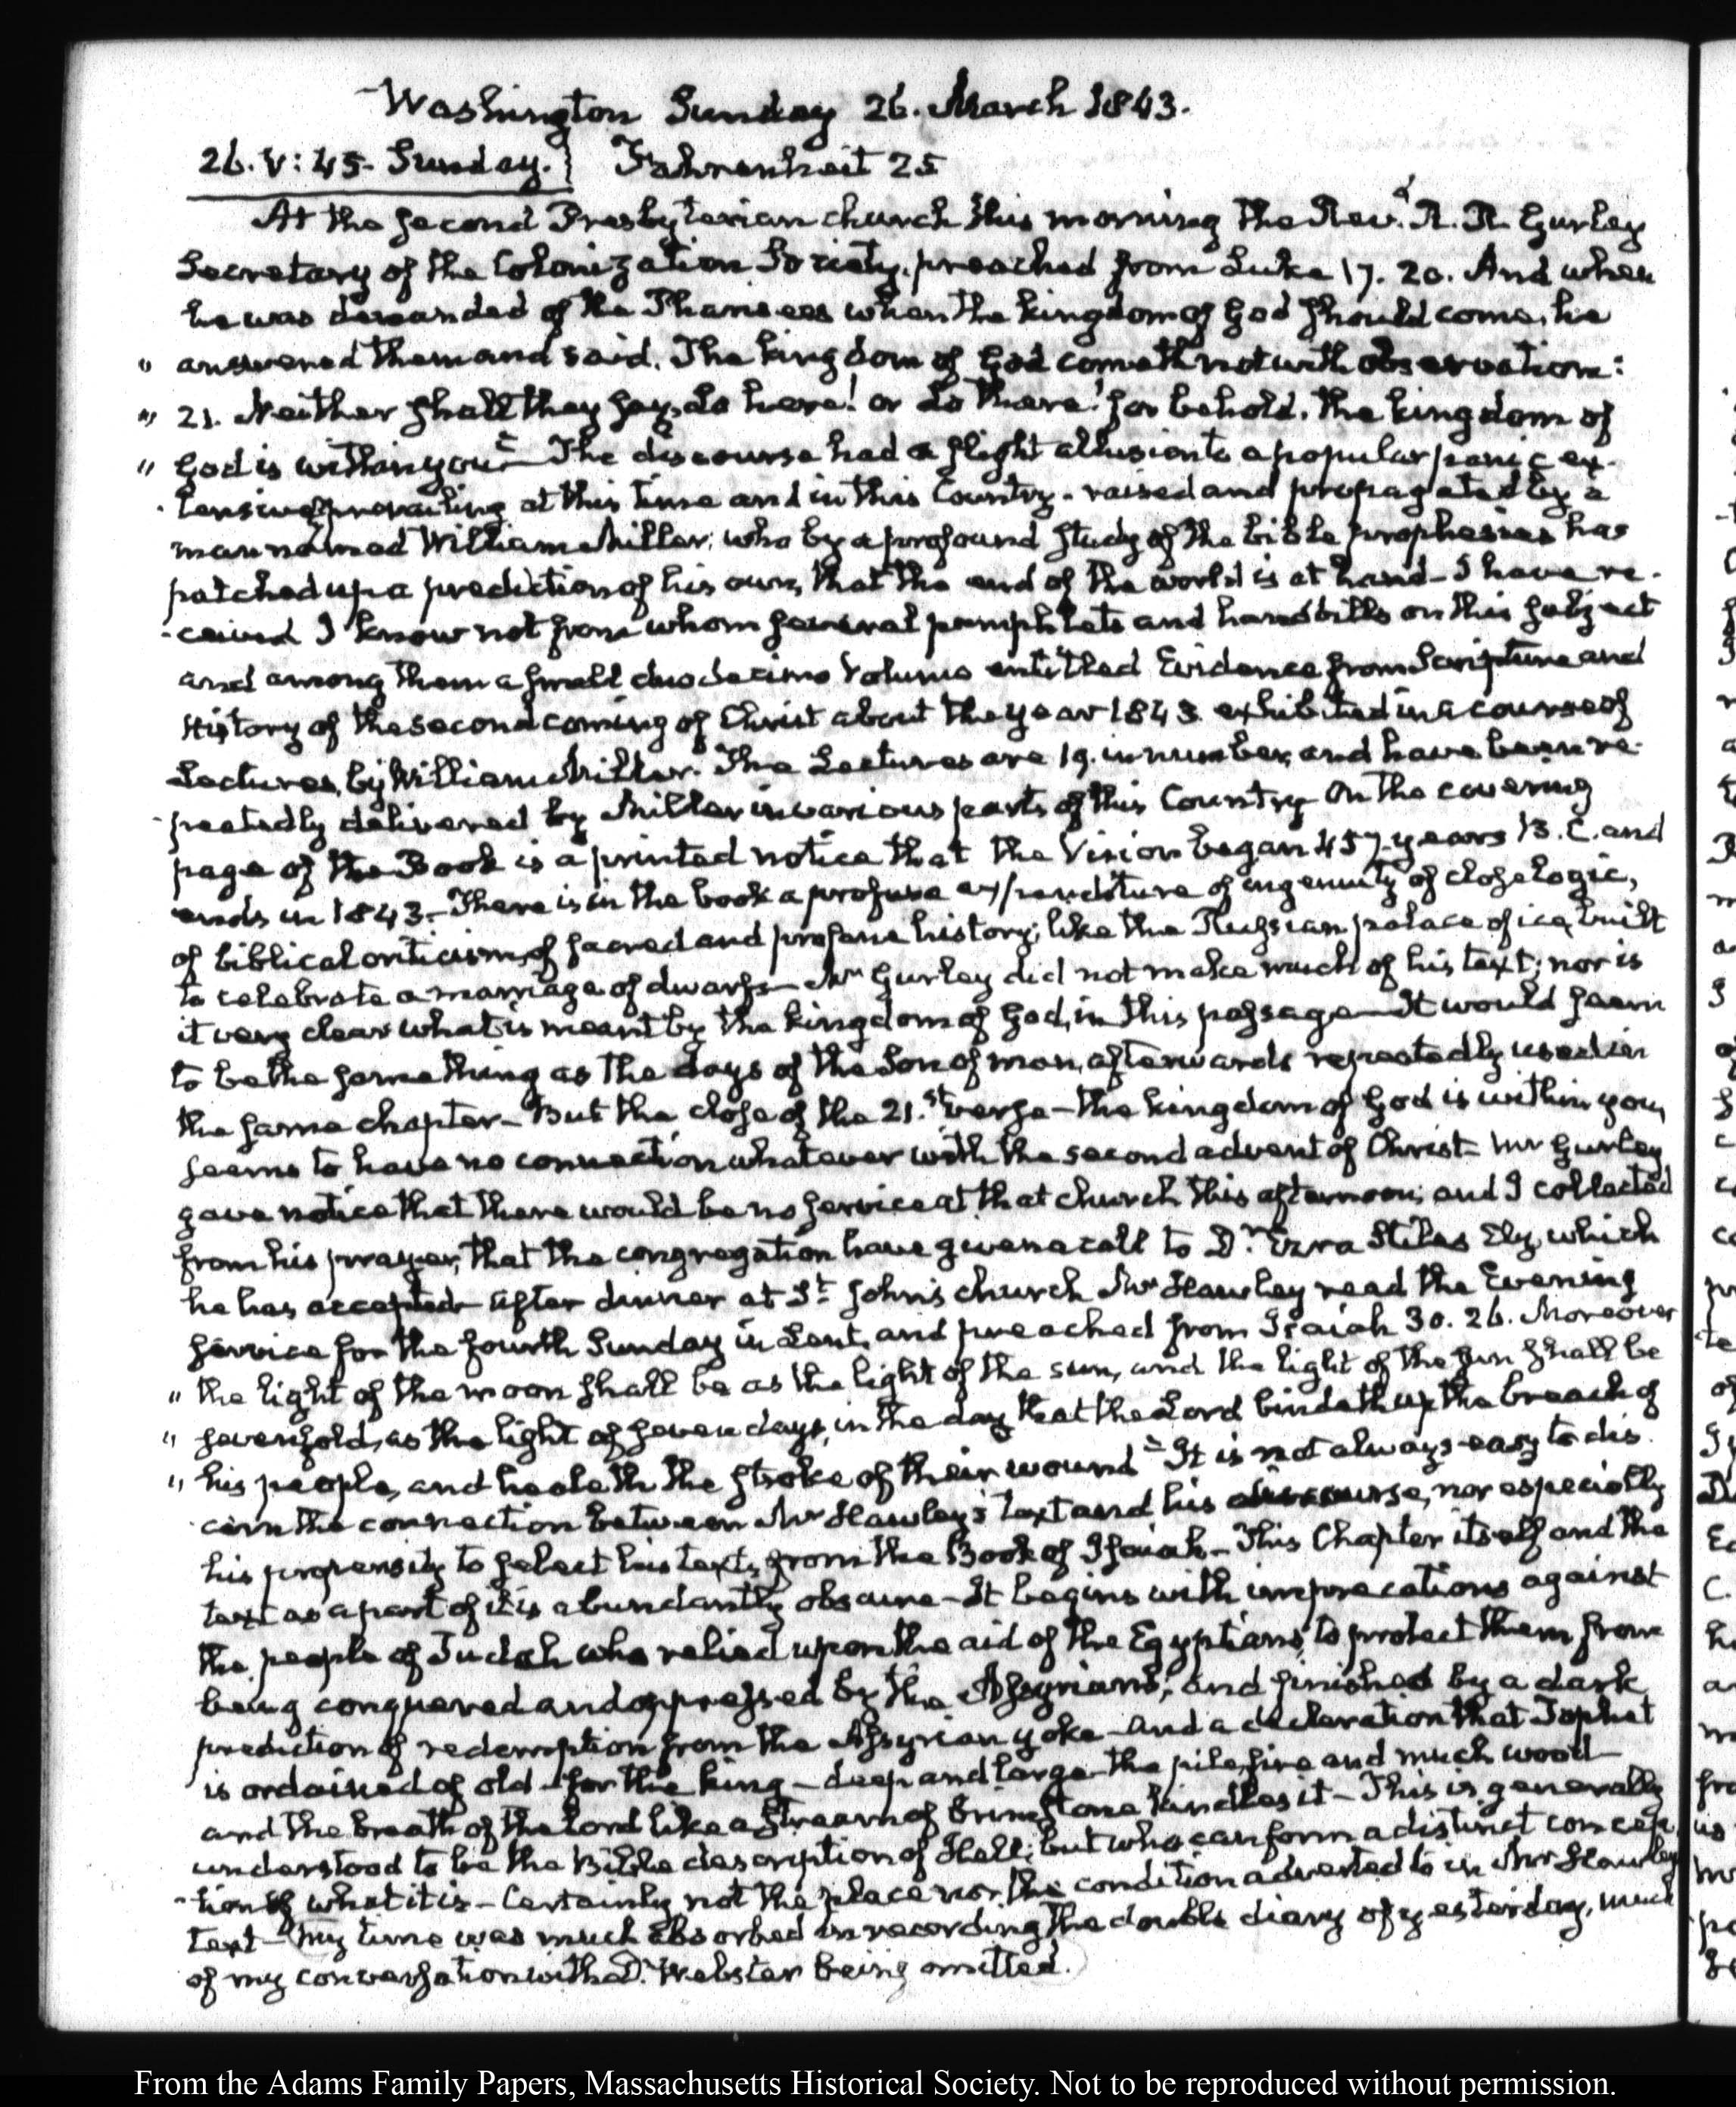 Washington Sunday 26. March 1843.
26. V:45. Sunday. Fahrenheit 25
At the second Presbyterian church this morning the Revd. R. R. Gurley
Secretary of the Colonization Society, preached from Luke 17. 20. And when
he was demanded of the Pharisees when the kingdom of God should come, he
" answered them and said. The kingdom of God cometh not with observation:
" 21. Neither shall they say, Lo here! or Lo there! for behold, the kingdom of
" God is within you" — The discourse had a slight allusion to a popular panic ex-
-tensively prevailing at this time and in this Country - raised and propagated by a
man named William Miller, who by a profound study of the bible prophesies has
patched up a prediction of his own, that the end of the world is at hand - I have re-
-ceived I know not from whom several pamphlets and handbills on this subject
and among them a small duodecimo volume entitled Evidence from Scripture and
History of the second coming of Christ about the year 1843. exhibited in a course of
Lectures, by William Miller. The Lectures are 19. in number, and have been re-
-peatedly delivered by Miller in various parts of this Country - On the covering
page of the Book is a printed notice that the Vision began 457 years B.C. and
ends in 1843 - There is in the book a profuse expenditure of ingenuity of close logic,
of biblical criticism, of sacred and profane history; like the Russian palace of ice, built
to celebrate a marriage of dwarfs - Mr Gurley did not make much of his text; nor is
it very clear what is meant by the kingdom of God, in this passage - It would seem
to be the same thing as the days of the Son of man, afterwards repeatedly used in
the same chapter - But the close of the 21.st verse - the kingdom of God is within you,
seems to have no connection whatever with the second advent of Christ - Mr Gurley
gave notice that there would be no service at that church this afternoon; and I collected
from his prayer, that the congregation have given a call to Dr. Ezra Stiles Ely, which
he has accepted - After dinner at St. John's church Mr Hawley read the Evening
service for the fourth Sunday in Lent, and preached from Isaiah 30. 26. Moreover
" the light of the moon shall be as the light of the sun, and the light of the sun shall be
" sevenfold, as the light of seven days, in the day that the Lord bindeth up the breach of
" his people, and healeth the stroke of their wound" It is not always easy to dis-
-cern the connection between Mr Hawley's text and his discourse, nor especially
his propensity to select his texts from the Book of Isaiah - This Chapter itself and the
text as a part of it is abundantly obscure - It begins with imprecations against
the people of Judah who relied upon the aid of the Egyptians, to protect them from
being conquered and oppressed by the Assyrians, and finished by a dark
prediction of redemption from the Assyrian yoke - and a declaration that Tophet
is ordained of old - for the king - deep and large - the pile, fire and much wood -
and the breath of the Lord like a stream of brimstone kindles it - This is generally
understood to be the Bible description of Hell; but who can form a distinct concep-
-tion of what it is - Certainly not the place nor the condition adverted to in Mr Hawley
text - My time was much absorbed in recording the double diary of yesterday, much
of my conversation with D. Webster being omitted.
From the Adams Family Papers, Massachusetts Historical Society. Not to be reproduced without permission.